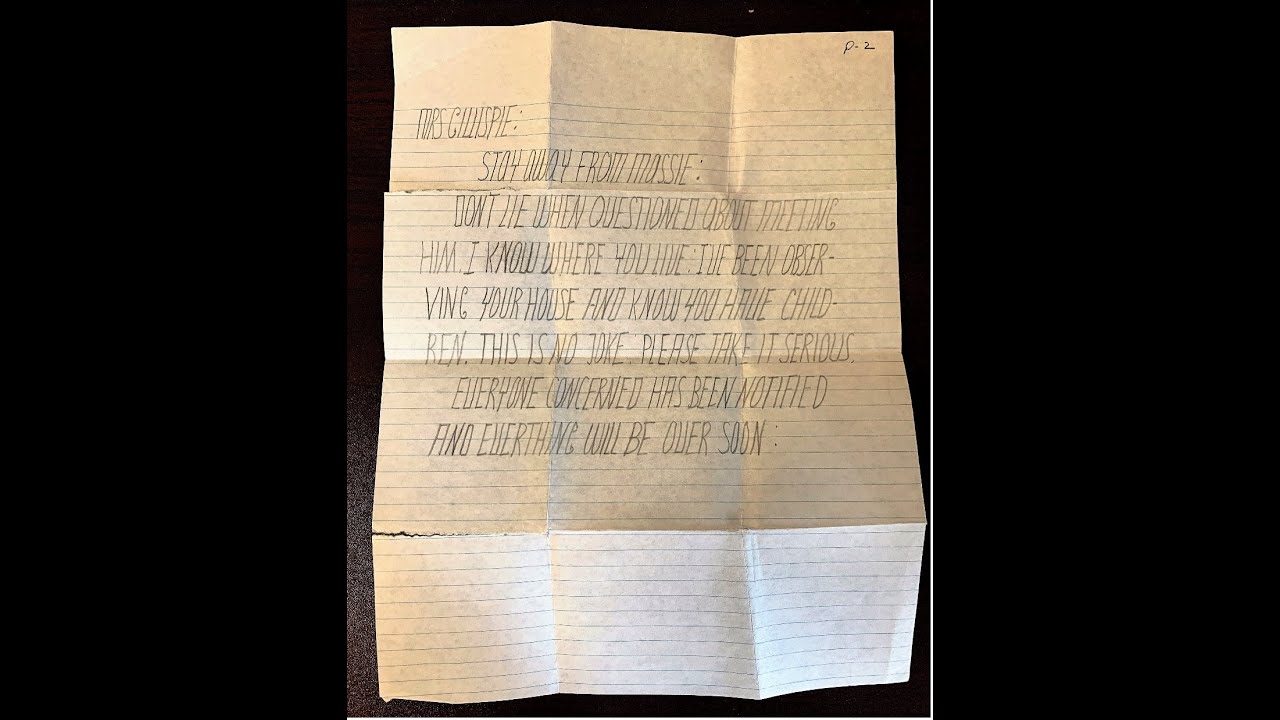 P-2
MRS GILLISPIE:
STAY AWAY FROM MASSIE:
DON'T LIE WHEN QUESTIONED ABOUT MEETING
HIM. I KNOW WHERE YOU LIVE: I'VE BEEN OBSER-
VING YOUR HOUSE AND KNOW YOU HAVE CHILD-
REN. THIS IS NO JOKE. PLEASE TAKE IT SERIOUS.
EVERYONE CONCERNED HAS BEEN NOTIFIED
AND EVERTHING WILL BE OVER SOON: